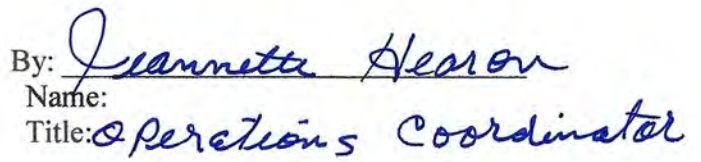 By: Jeannette Hearon
Name:
Title: Operations Coordinator